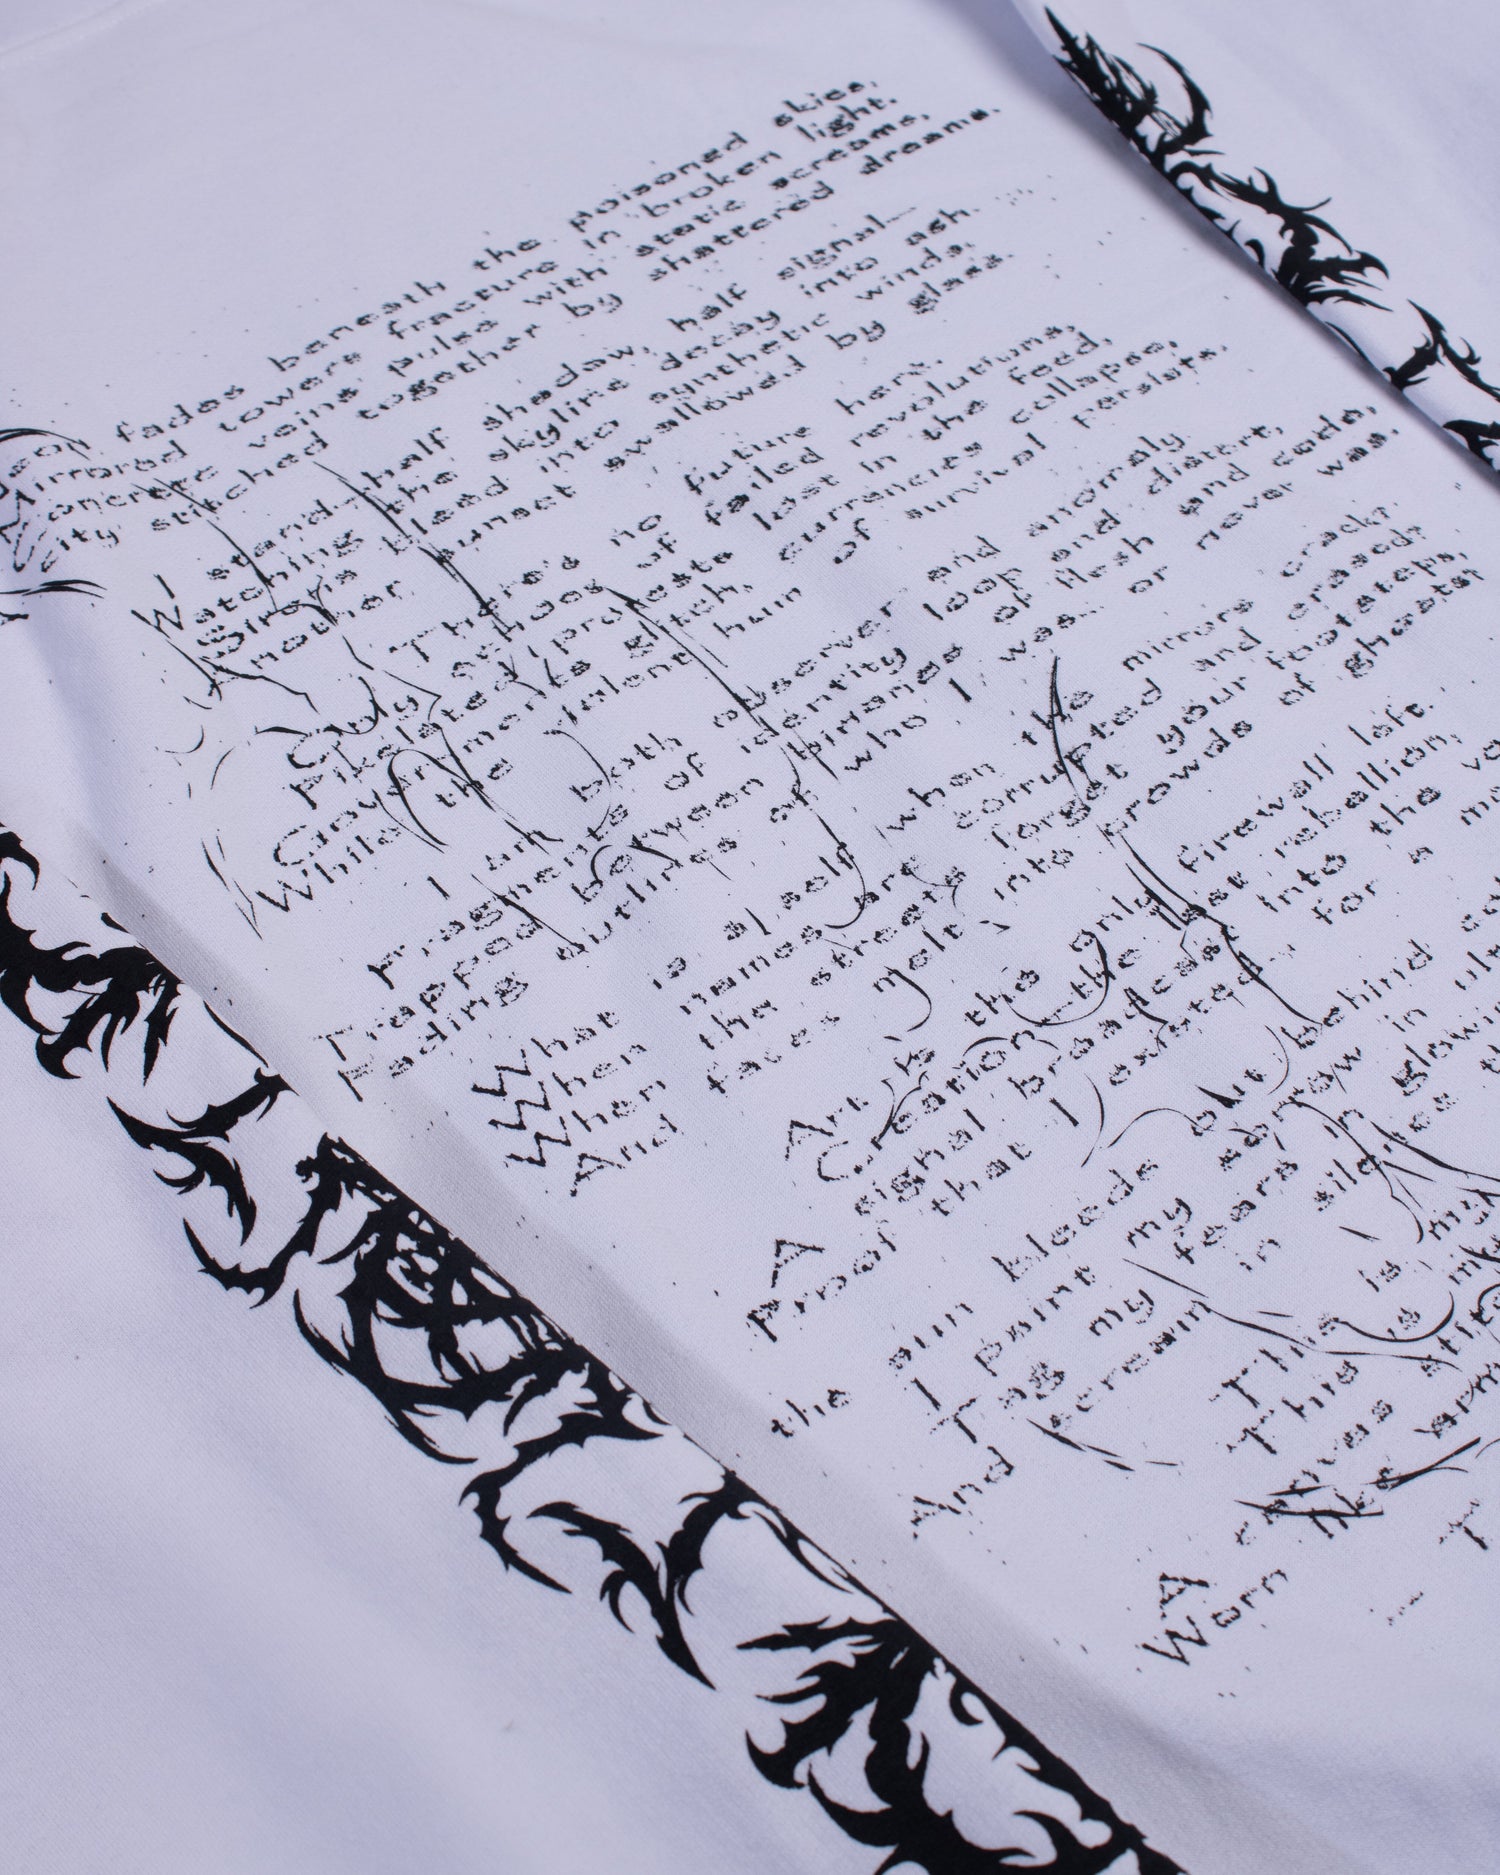 fades beneath the poisoned skies,
Mirrored towers fracture in broken light.
Concrete veins pulse with static screams,
city stitched together by shattered dreams.
I stand—half shadow, half signal—
Watching the skyline decay into ash.
Sirens bleed into synthetic winds,
Another sunset swallowed by glass.
There's no future here.
Only echoes of failed revolutions,
Pixelated protests lost in the feed,
Governments glitch, currencies collapse,
While the silent hum of survival persists.
I am both observer and anomaly
Fragments of identity loop and distort,
Trapped between binaries of flesh and code,
Fading outlines of who I was... or never was.
What is a self when the mirrors crack?
When names are corrupted and erased?
When the streets forget your footsteps,
And faces melt into crowds of ghosts?
Art is the only firewall left.
Creation—the last rebellion,
A signal broadcast into the
Proof that I existed... for a
the sun bleeds out behind
I paint my sorrow in
Tag my tears in glowing
And scream in silence
This is my
This is
A
Worn